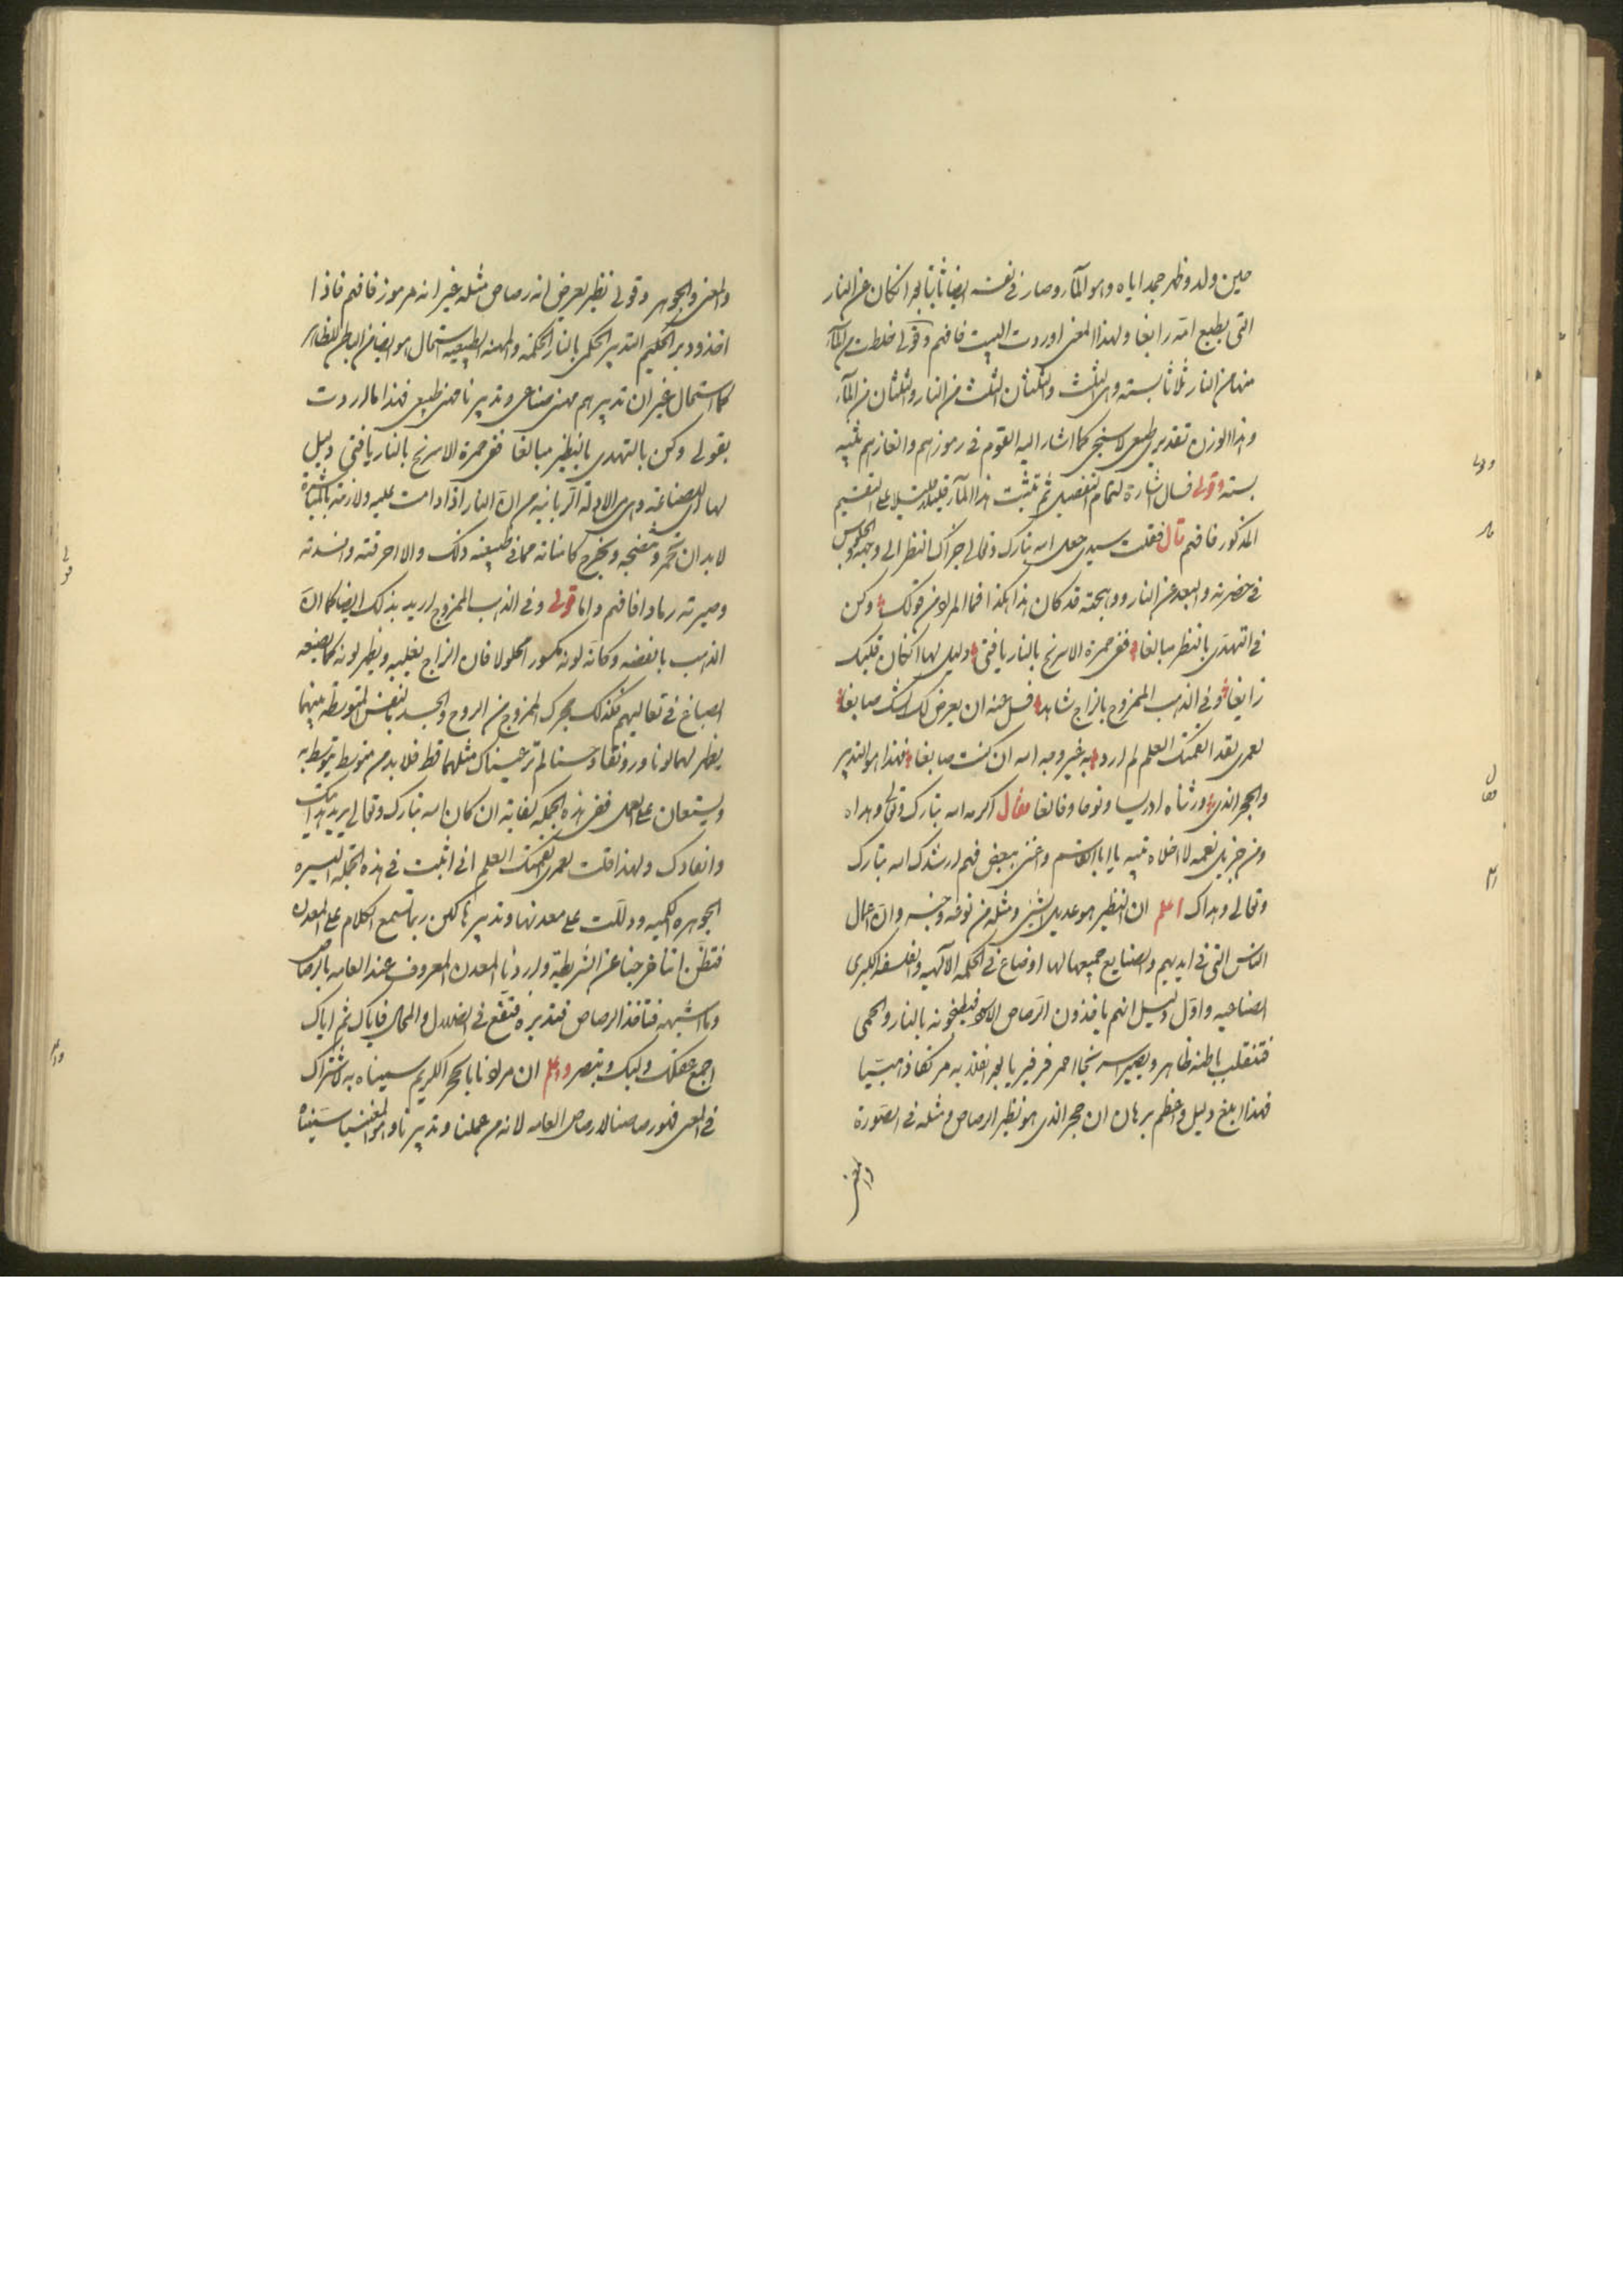 حين ولد وظهر جمد اباه وهو المآء وصار في نفسه ايضا ثابتا لمجرا فكان عن النار
التي بطبع امه رابغا ولهذا المعنى اوردت البيت فافهم وقولي فخلطت من المآء
منها من النار ثلاثا بستة وهي الثلث والثلثان الثلث من النار والثلثان من المآء
وهذا الوزن تقديري طبيعي لا سنجي كما اشار اليه القوم في رموزهم والغازهم
بسته وقولي فسال اشارة لتمام التفصيل ثم تثبت هذا المآء قليلا قليلا على التقسيم
المذكور فافهم قال فقلت سيدي جعل الله تبارك وتعالى جزاك النظر الى وجهه والجلوس
في حضرته والبعد عن النار قد كان هذا هكذا فما المراد من قولك وكن
في التهدي بالنظر مبالغا ففي حمرة الاسرنج بالنار يا فتى دليل لها ان كان قلبك
زايغا وفي الذهب الممزوج بالزاج شاهد فسل عنه ان يعرض لك الشك صابغا
لعمري لقد الهمتك العلم لم ارد به غير وجه الله ان كنت صابغا فهذا هو التدبير
والحجر الذي ورثناه ادريسا ونوحا وفالغا فقال اكرمه الله تبارك وتعالى وهداه
ومن جزيل نعمه لا اخلاه تنبيه يا ابا القاسم وافهم ارشدك الله تبارك
وتعالى وهداك اعلم ان النظير هو عديل الشئ ومثله من نوعه وجنسه وان اعمال
الناس التي في ايديهم والصنايع جميعها لها اوضاع في الحكمه الآلهيه والفلسفه الكبرى
الصناعيه واول دليل انهم ياخذون الرصاص الاسود فيطبخونه بالنار والحمى
فتنقلب باطنه ظاهره ويصير اسرنجا احمر فرفيريا
فهذا ابلغ دليل واعظم برهان ان حجر الذي هو نظير الرصاص ومثله في الصورة
والمعنى
والمعنى والجوهر وقولي نظير يعرض انه رصاص مثله غير انه مرموز فافهم فاذا
اخذه ودبره الحكيم التدبير الحكمي بالنار الحكمه والمهنه الطبيعيه استحال هو ايضا من الباطن للظاهر
كما استحال غير ان تدبيرهم مهني صناعي وتدبيرنا مهني طبيعي فهذا ما اردت
بقولي وكن بالتهدي بالنظير مبالغا ففي حمرة الاسرنج بالنار يا فتى دليل
لها اي للصناعة وهي من الادلة الربانيه من ان النار اذا دامت عليه ولازمته بالمباشرة
لا بد ان تحمره وتنضجه ويخرج كامناته مما في طبيعته ذلك والا احرقته وافسدته
وصيرته رمادا فافهم واما قولي وفي الذهب الممزوج اريد بذلك ايضا كما ان
الذهب بالفضه وكانه لونه مكسور محلولا فان الزاج يغلبه ويظهر لونه كما يصنعه
الصباغ في تعاليهم فكذلك حجرك الممزوج من الروح والجسد بالنفس المتوسطه بينهما
يظهر لهما لونا ورونقا وحسنا لم تر عيناك مثلهما قط فلا بد من متوسط يتوسط به
ويستعان على العمل ففي هذه الجمله كفاية ان كان الله تبارك وتعالى يريد هدايتك
وانقاذك ولهذا قلت لعمري الهمتك العلم اني اثبت في هذه الجمله اليسيره
الجوهره الكميه ودللت على معدنها وتدبيرها لكن ربما تسمع الكلام على المعدن
فتظن اننا خرجنا عن الشريطة واردنا المعدن المعروف عند العامه بالرصاص
وما اشبهه فتاخذ الرصاص فتدبره فتقع في الضلال والمحال فاياك ثم اياك
اجمع عقلك ولبك وتبصر واعلم ان مرادنا بالحجر الكريم سميناه به لاشتراك
في المعنى فهو رصاصنا لا رصاص العامه لانه من عملنا وتدبيرنا